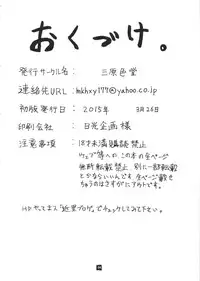 おくづけ。
発行サークル名: 三原色堂
連絡先URL: hkhxy177@yahoo.co.jp
初版発行日: 2015年 3月26日
印刷会社: 日光企画様
注意事項: 18才未満購読禁止
ウェブ等への この本の全ページ
無断転載禁止 別に一部転載
とかならいいんです。全ページ載せ
ちゃうのはさすがにアウトです。
HPやってます「近里ブログ」でチェックしてみて下さい。